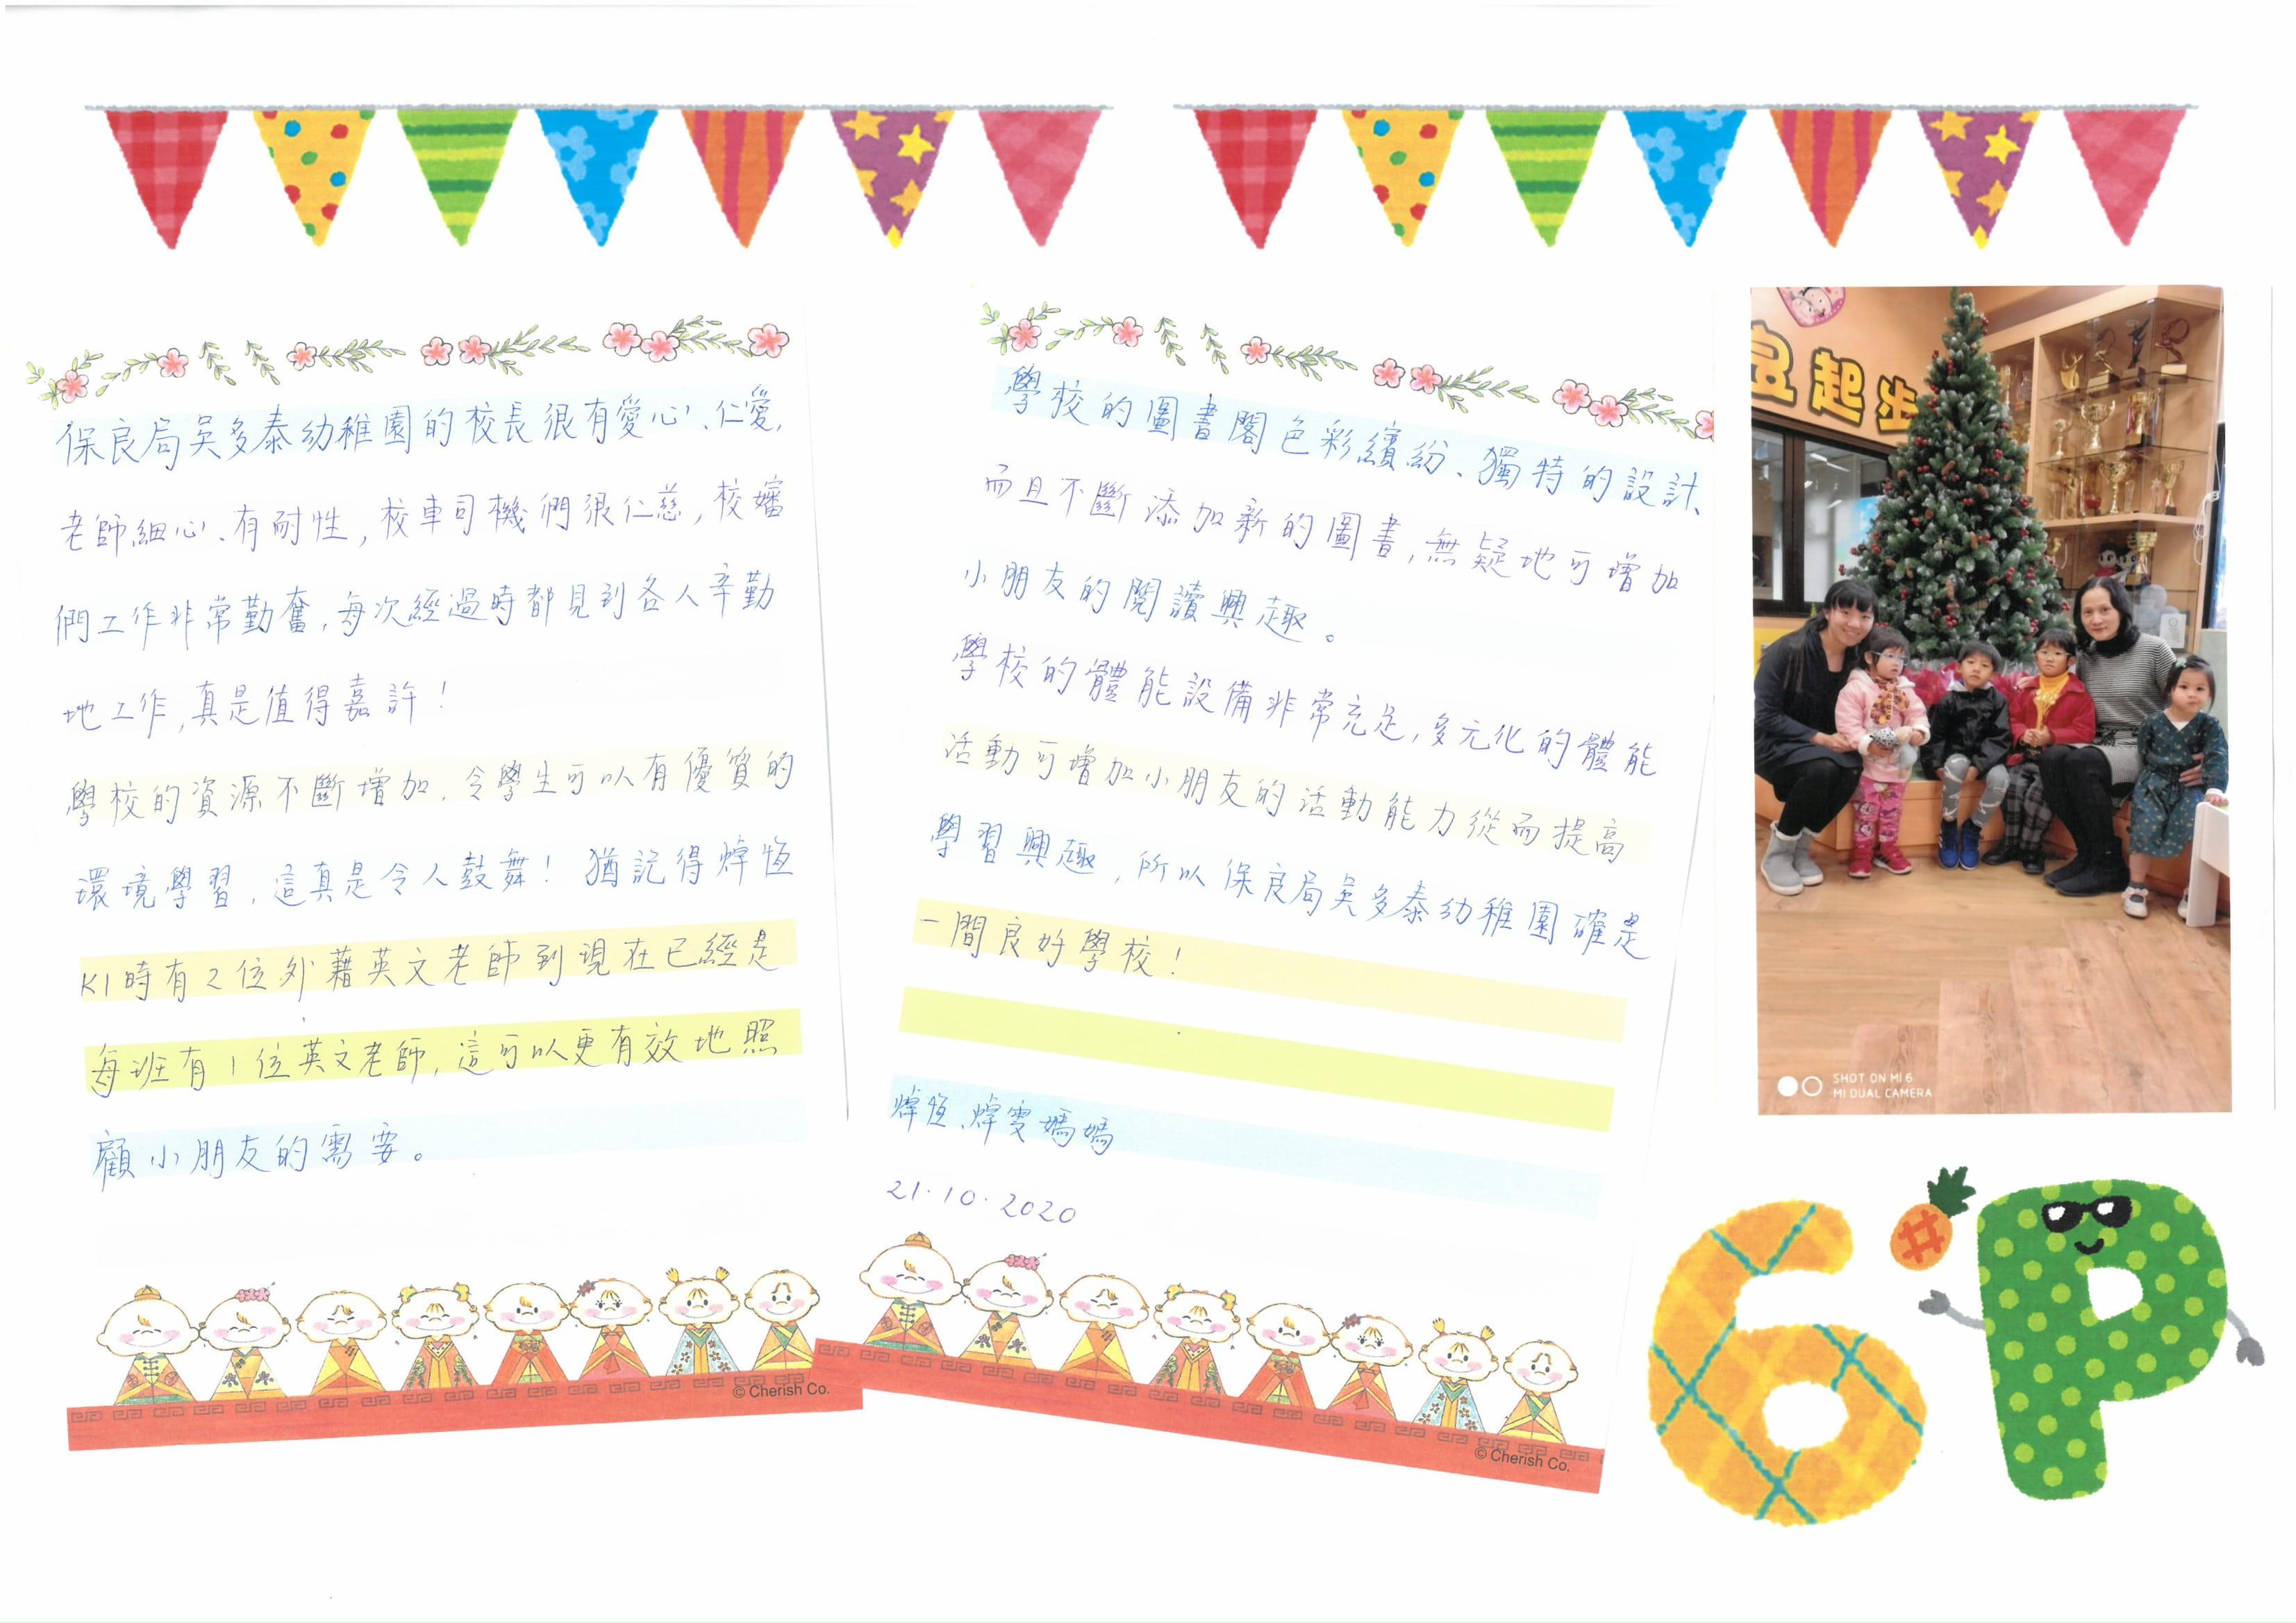 保良局吳多泰幼稚園的校長很有愛心、仁愛,
老師細心、有耐性,校車司機們很仁慈,校嬸
們工作非常勤奮,每次經過時都見到各人辛勤
地工作,真是值得嘉許!
學校的資源不斷增加,令學生可以有優質的
環境學習,這真是令人鼓舞!猶記得煒恆
K1時有2位外藉英文老師到現在已經是
每班有1位英文老師,這可以更有效地照
顧小朋友的需要。
© Cherish Co.
學校的圖書閣色彩繽紛、獨特的設計、
而且不斷添加新的圖書,無疑地可增加
小朋友的閱讀興趣。
學校的體能設備非常充足,多元化的體能
活動可增加小朋友的活動能力從而提高
學習興趣,所以保良局吳多泰幼稚園確是
一間良好學校!
煒恆、煒雯媽媽
21.10.2020
© Cherish Co.
起生
SHOT ON MI 6
MI DUAL CAMERA
6P